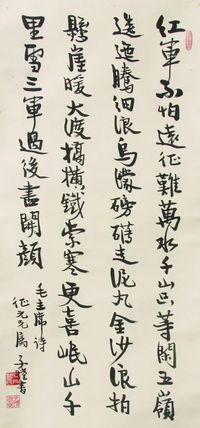 紅軍不怕遠征難萬水千山只等閑五嶺
逶迤騰細浪烏濛磅礴走泥丸金沙浪拍
懸崖暖大渡橋橫鐵索寒更喜岷山千
里雪三軍過後盡開顏
毛主席詩
征光兄屬 子書